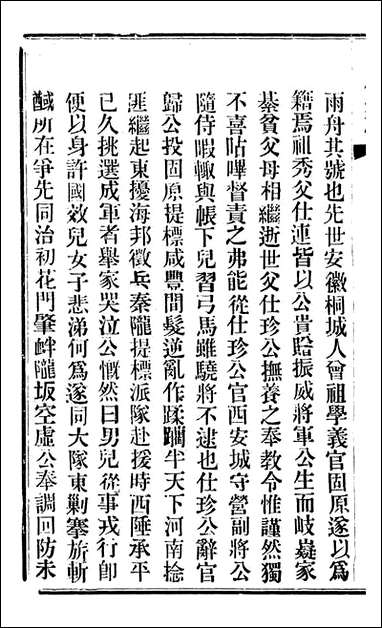 雨舟其號也先世安徽桐城人曾祖學義官固原遂以爲
籍焉祖秀父仕連皆以公貴貤振威將軍公生而岐嶷家
綦貧父母相繼逝世父仕珍公撫養之奉敎令惟謹然獨
不喜呫嗶督責之弗能從仕珍公官西安城守營副將公
隨侍暇輒與帳下兒習弓馬雖驍將不逮也仕珍公辭官
歸公投固原提標咸豐間髮逆亂作蹂躪半天下河南捻
匪繼起東擾海邦徵兵秦隴提標派隊赴援時西陲承平
已久挑選成軍者舉家哭泣公慨然曰男兒從事戎行卽
便以身許國效兒女子悲涕何爲遂同大隊東剿搴旂斬
馘所在爭先同治初花門肇衅隴坂空虛公奉調回防未